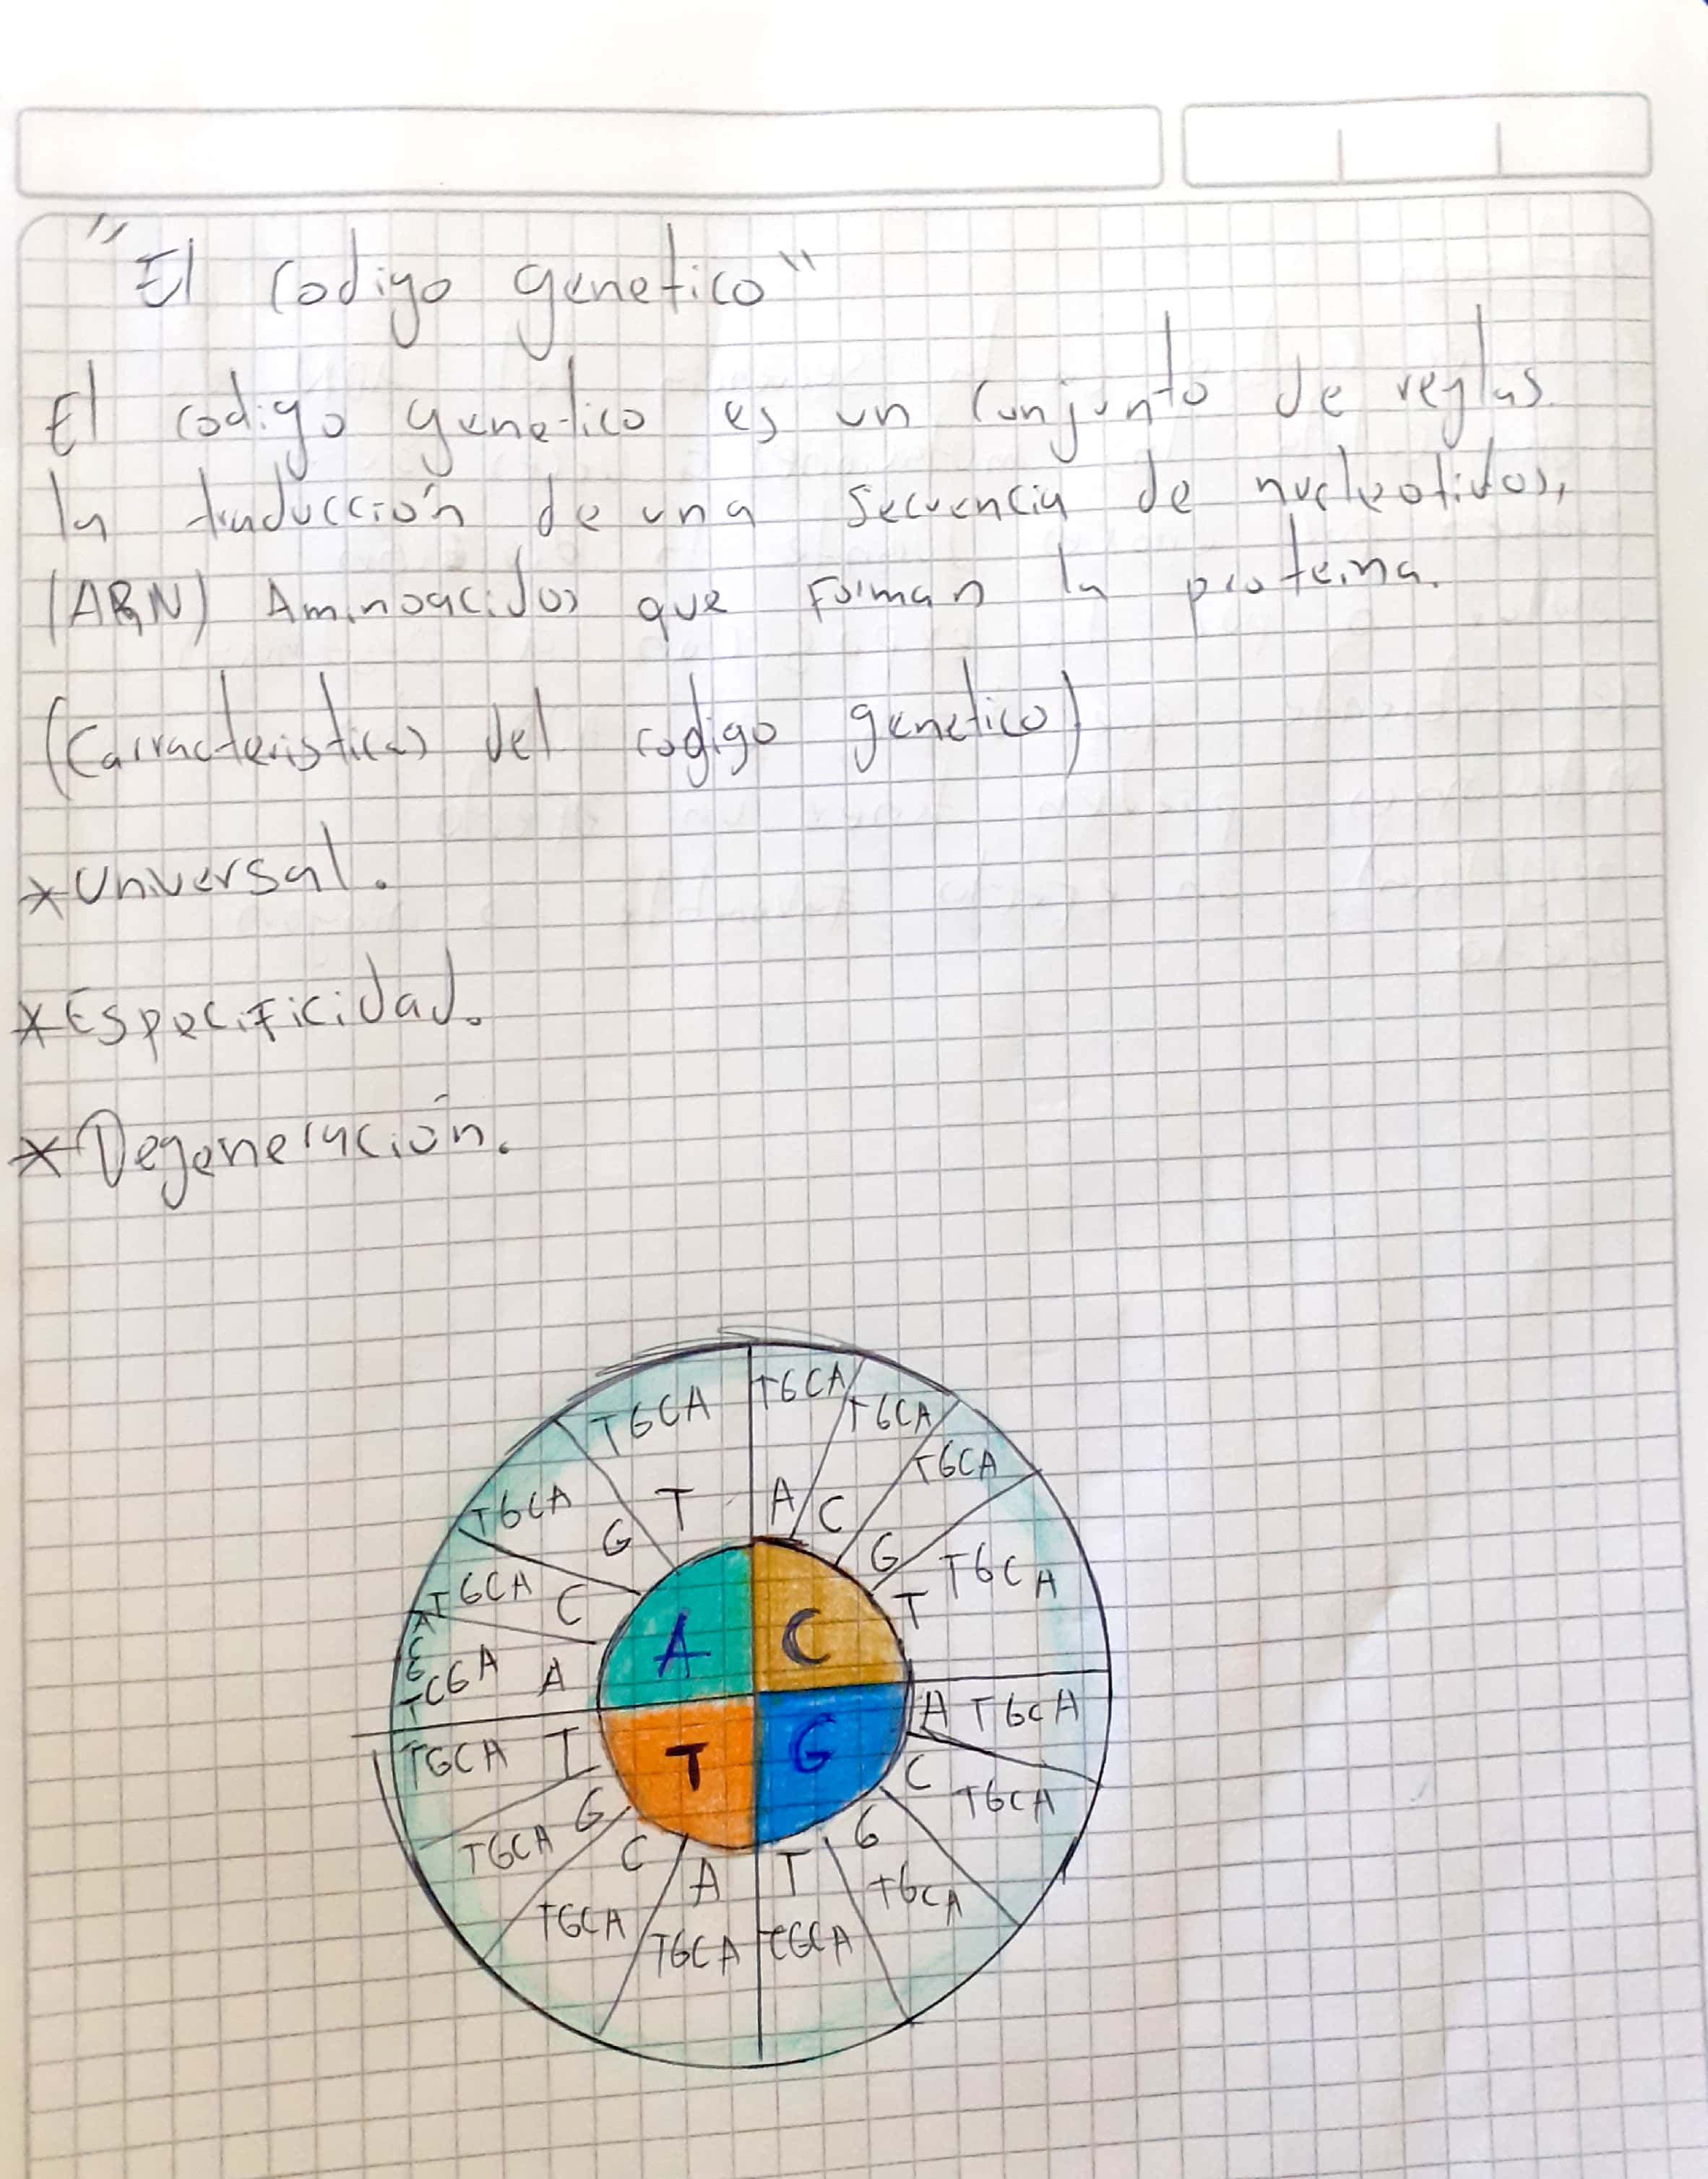 "El codigo genetico"
El codigo genetico es un conjunto de reglas
la traducción de una secuencia de nucleotidos,
(ARN) Aminoacidos que Forman la proteina.
(Carracteristicas del codigo genetico)
*Universal.
*Especificidad.
*Degeneración.
TGCA TGCA
TGCA
TGCA
TGCA T A C
G G TGCA
TGCA C T
A C
TCGA A
T G A TGCA
TGCA T C
G TGCA
TGCA C A T G
TGCA TGCA
TGCA TGCA